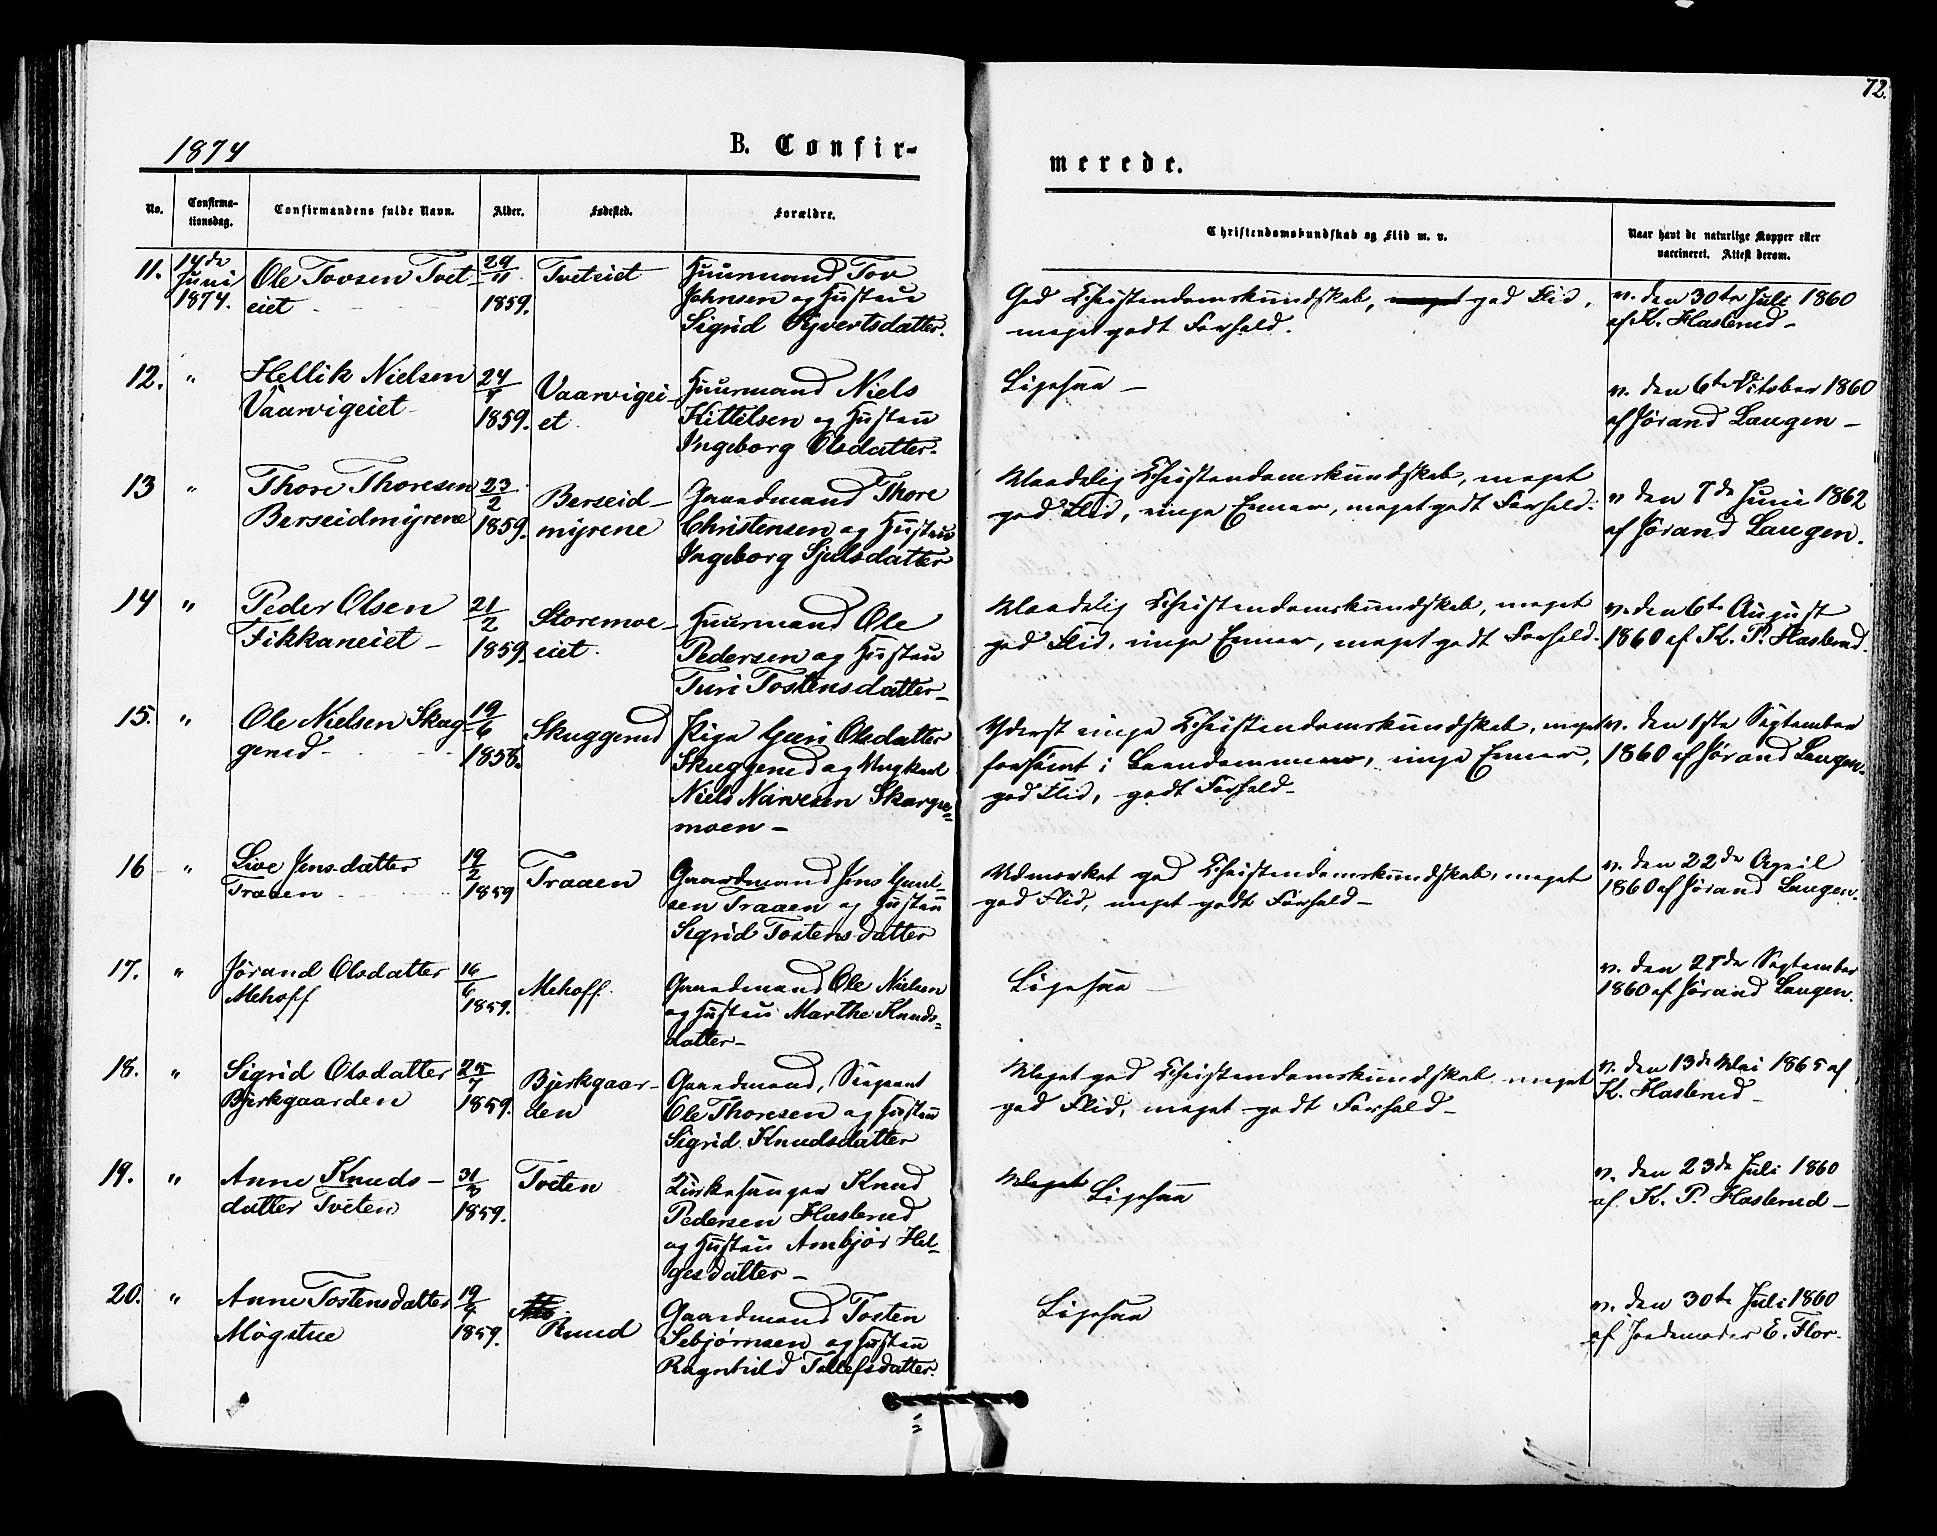 72.
1874
B. Confir-
merede.
No.
Confirma-
tionsdag.
Confirmandens fulde Navn.
Alder.
Fødested.
Forældre.
Christendomskundskab og Flid m. v.
Naar havt de naturlige Kopper eller
vaccineret. Attest derom.
11.
14de
Juni
1874.
Ole Tovsen Tvet-
eiet
29/11
1859.
Tveteiet
Huusmand Tov
Johnsen og Hustru
Sigrid Sjvertsdatter.
God Christendomskundskab, meget god Flid,
meget godt Forhold.
v. den 30te Juli 1860
af K. Haslerud
12.
"
Hellik Nielsen
Vaarvigeiet
1859.
Vaarvigei-
et
Huusmand Niels
Kittilsen og Hustru
Ingeborg Olsdatter.
Ligesaa
v. den 6te October 1860
af Jørand Laugen
13
"
Thore Thoresen
Berseidmyrene
23/2
1859.
Berseid-
myrene
Gaardmand Thore
Christensen og Hustru
Ingeborg Sjulsdatter
Maadelig Christendomskundskab, meget
god Flid, ringe Evner, meget godt Forhold.
v. den 7de Juni 1862
af Jørand Laugen.
14
"
Peder Olsen
Fikkaneiet
21/2
1859.
Storemoe-
eiet.
Huusmand Ole
Pedersen og Hustru
Turi Tostensdatter
Maadelig Christendomskundskab, meget
god Flid, ringe Evner, meget godt Forhold.
v. den 6te August
1860 af K. P. Haslerud.
15.
"
Ole Nielsen Skug-
gerud
19/6
1858.
Skuggerud
Pige Guri Olsdatter
Skuggerud og Ungkarl
Niels Narvesen
moen
Yderst ringe Christendomskundskab, meget
forsømt i Barndommen, ringe Evner,
god Flid, godt Forhold
v. den 1ste September
1860 af Jørand Laugen.
16
"
Live Jensdatter
Traaen
19/2
1859
Traaen
Gaardmand Jens Gaul-
sen Traaen og Hustru
Sigrid Tostensdatter
Udmærket god Christendomskundskab, meget
god Flid, meget godt Forhold
v. den 22de April
1860 af Jørand Laugen.
17.
"
Jørand Olsdatter
Mehoff
16/6
1859.
Mehoff.
Gaardmand Ole Nielsen
og Hustru Marthe Knuds-
datter
Ligesaa
v. den 27de September
1860 af Jørand Laugen.
18.
"
Sigrid Olsdatter
Bjerkgaarden
25/7
1859.
Bjerkgaar-
den
Gaardmand, Sergeant
Ole Thoresen og Hustru
Sigrid Knudsdatter
Meget god Christendomskundskab meget
god Flid, meget godt Forhold
v. den 13de Mai 1865 af
K. Haslerud
19.
"
Anne Knuds-
datter Tveten
31/3
1859.
Tveten
Kirkesanger Knud
Pedersen Haslerud
og Hustru Ambjør Hel-
gesdatter
Meget Ligesaa
v. den 23de Juli 1860
af K. P. Haslerud
20.
"
Anne Tostensdatter
Møgstue
1859.
Ruud
Gaardmand Tosten
Sebjørnsen og Hustru
Ragnhild Tollefsdatter.
Ligesaa
v. den 30te Juli 1860
af Jordemoder E. Flor.